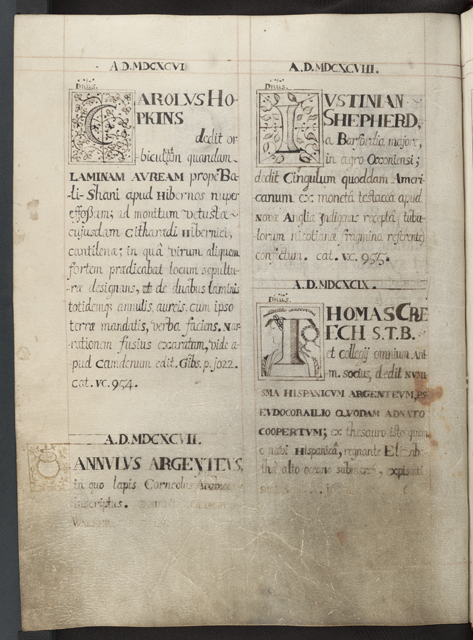 A.D. MDCXCVI
Dnus.
CAROLVS HO-
PKINS
dedit or
biculũm quandam
LAMINAM AVREAM prope Ba-
li-Shani apud Hibernos nuper
effoßam; ad monitum vetustæ
cujusdam citharædi Hibernici,
cantilenæ; in quâ virum aliquem
fortem prædicabat locum sepultu-
ræ designans, et de duabus laminis
totidemq; annulis aureis cum ipso
terræ mandatis, verba faciens. Nar-
rationem fusius exaratam, vide a-
pud Camdenum edit. Gibs. p. 1022.
cat. vc. 954.
A.D. MDCXCVII.
ANNVLVS ARGENTEVS,
in quo lapis Corneolus
inscriptus.
A.D. MDCXCVIII.
Dnus.
IVSTINIAN
SHEPHERD,
a Barfordia majore,
in agro Oxoniensi;
dedit Cingulum quoddam Ameri-
canum ex monetâ testaceâ apud
Novæ Angliæ Indigenas receptâ, tubu-
lorum nicotianæ fragmina referente
confectum. cat. vc. 955.
A.D. MDCXCIX.
Dnus.
THOMAS CRE
ECH S.T.B.
et collegij omnium Ani-
m. socius, dedit NVMI
SMA HISPANICVM ARGENTEVM, PS
EVDOCORALLIO QVODAM ADNATO
COOPERTVM; ex thesauro isto quon
e navi Hispanicâ, regnante Elizab-
thâ alto oceano submersâ, expiscati